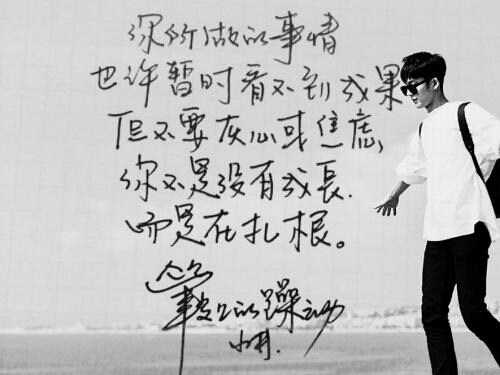 你所做的事情
也许暂时看不到成果
但不要灰心或焦虑,
你不是没有成长.
而是在扎根。
的躁动